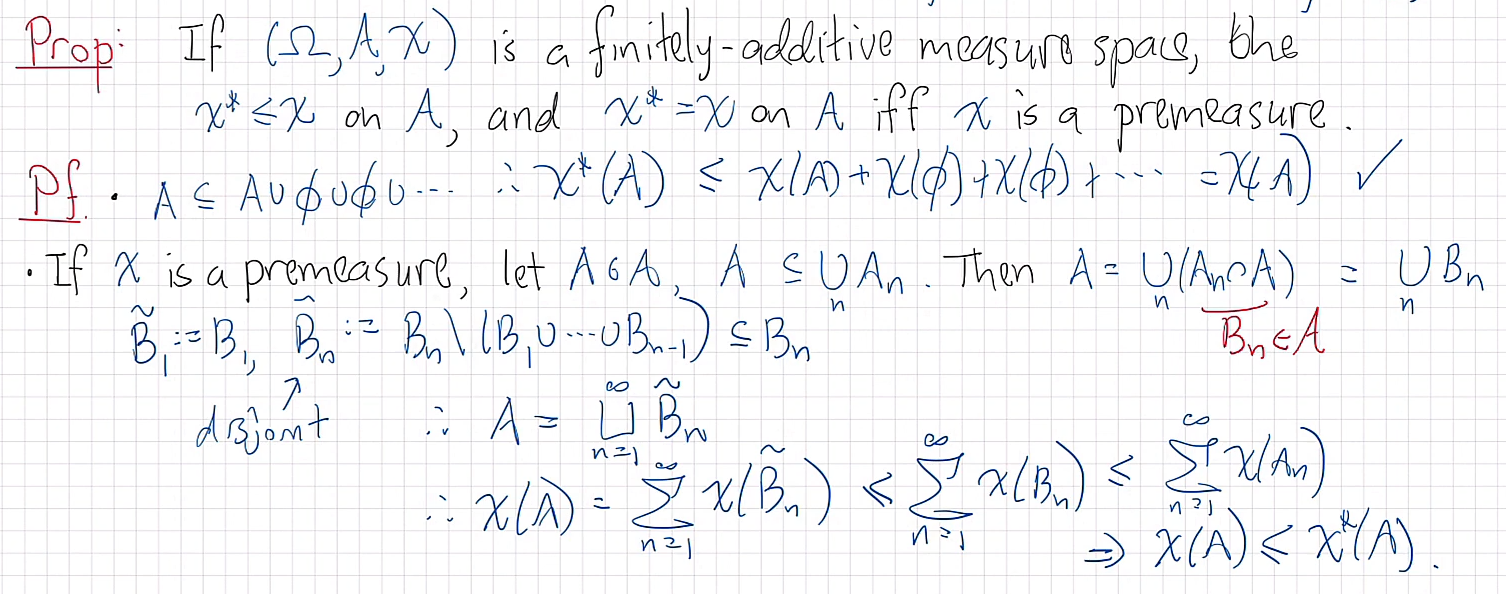 Prop: If (Ω, A, χ) is a finitely-additive measure space, the
χ* ≤ χ on A, and χ* = χ on A iff χ is a premeasure.
Pf. • A ⊆ A∪∅∪∅∪⋯ ∴ χ*(A) ≤ χ(A)+χ(∅)+χ(∅)+⋯ = χ(A) ✓
• If χ is a premeasure, let A∈A, A ⊆ ⋃_n A_n. Then A = ⋃_n (A_n∩A) = ⋃_n B_n
B_n ∈ A
B̃_1 := B_1, B̃_n := B_n \ (B_1∪⋯∪B_{n-1}) ⊆ B_n
↑
disjoint ∴ A = ⊔_{n=1}^∞ B̃_n
∴ χ(A) = ∑_{n=1}^∞ χ(B̃_n) ≤ ∑_{n=1}^∞ χ(B_n) ≤ ∑_{n=1}^∞ χ(A_n)
⇒ χ(A) ≤ χ*(A).